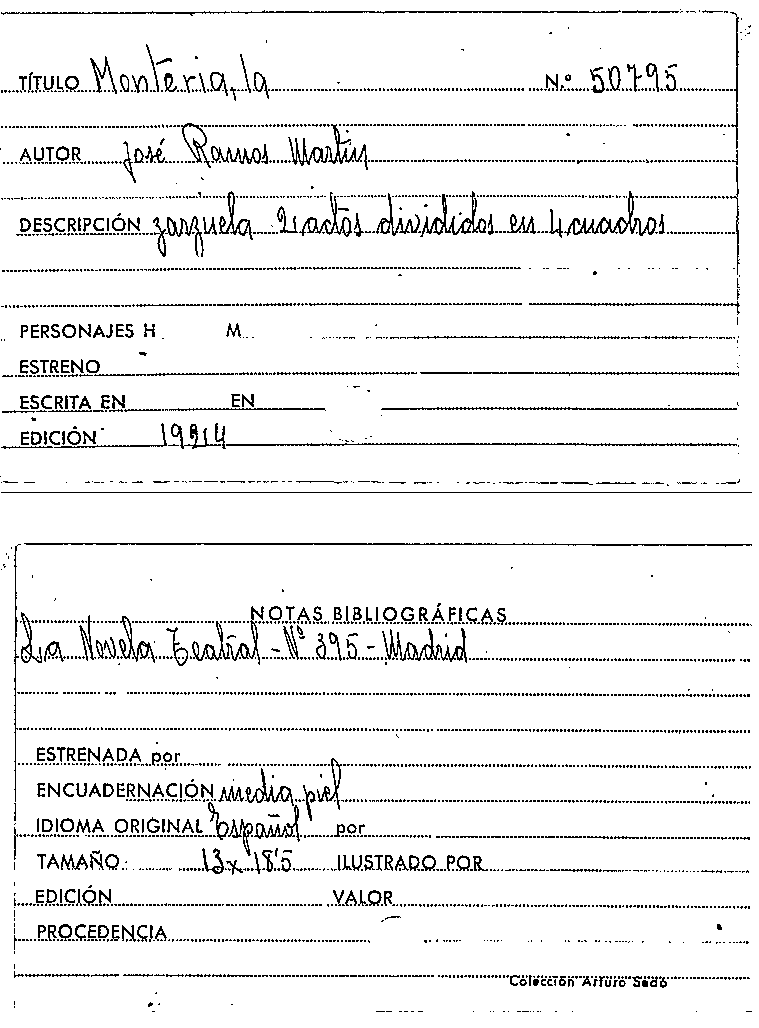 TÍTULO Montería, la N.º 50795
AUTOR José Ramos Martín
DESCRIPCIÓN zarzuela 2 actos divididos en 4 cuadros
PERSONAJES H. M.
ESTRENO
ESCRITA EN EN
EDICIÓN
NOTAS BIBLIOGRÁFICAS
La Novela Teatral - Nº 395 - Madrid
ESTRENADA por
ENCUADERNACIÓN media piel
IDIOMA ORIGINAL Español por
TAMAÑO 13x18'5 ILUSTRADO POR
EDICIÓN VALOR
PROCEDENCIA
Colección Arturo Sedó